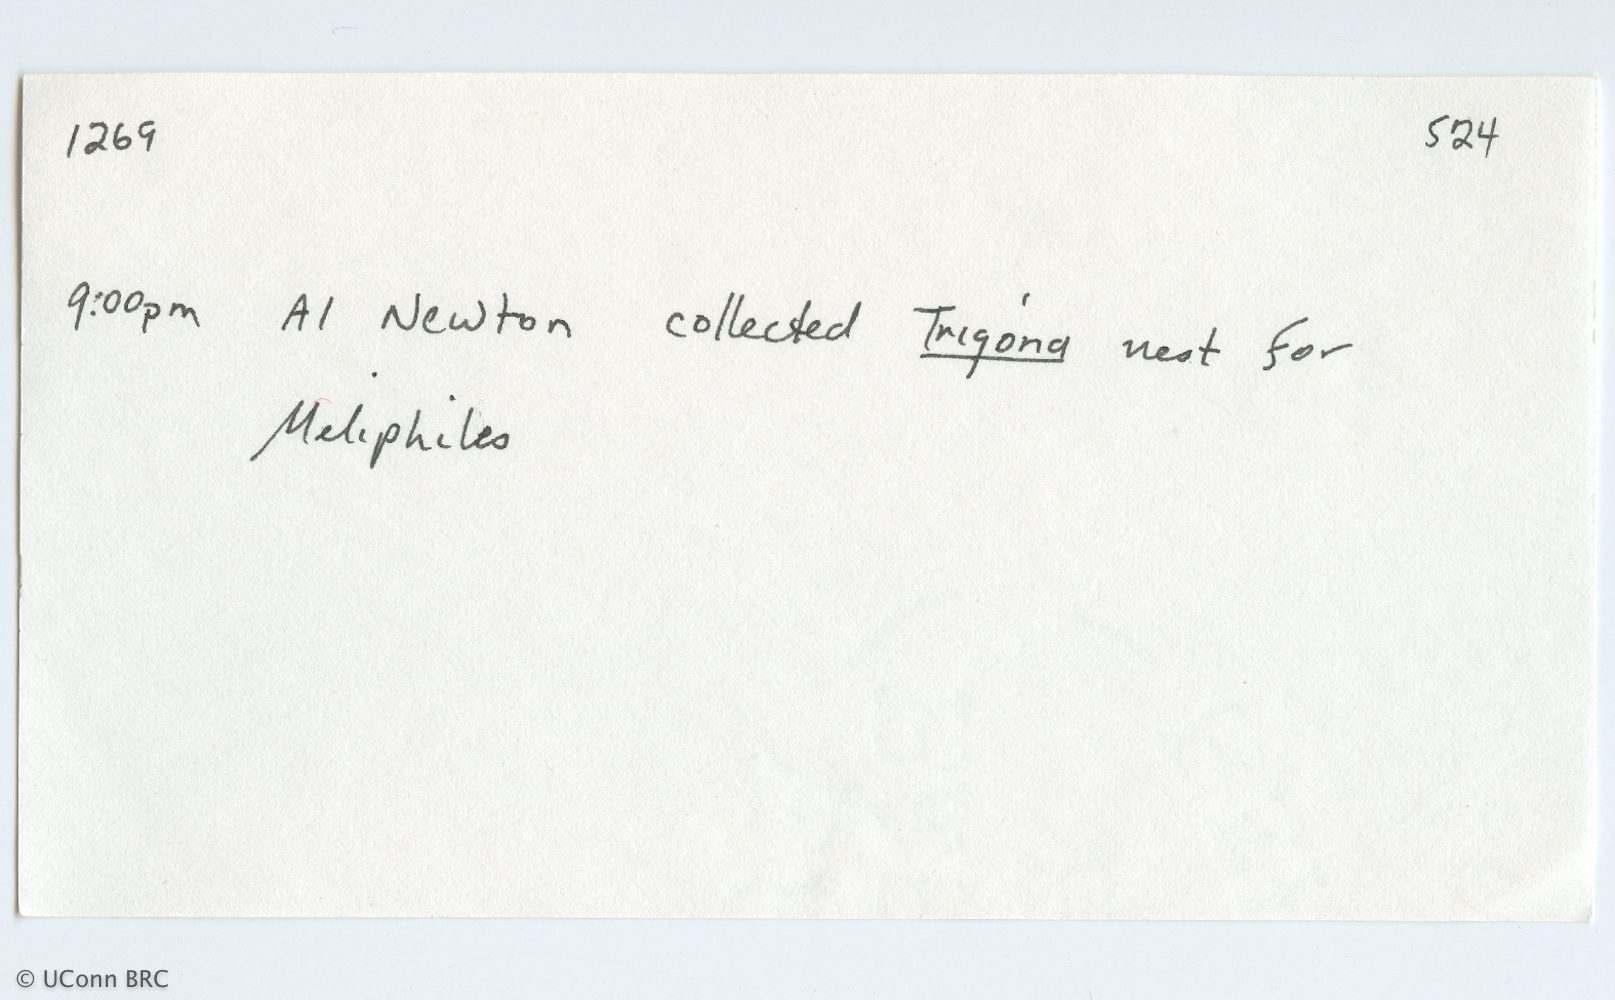 1269 524
9:00pm Al Newton collected Trigona nest for
Meliphiles
© UConn BRC